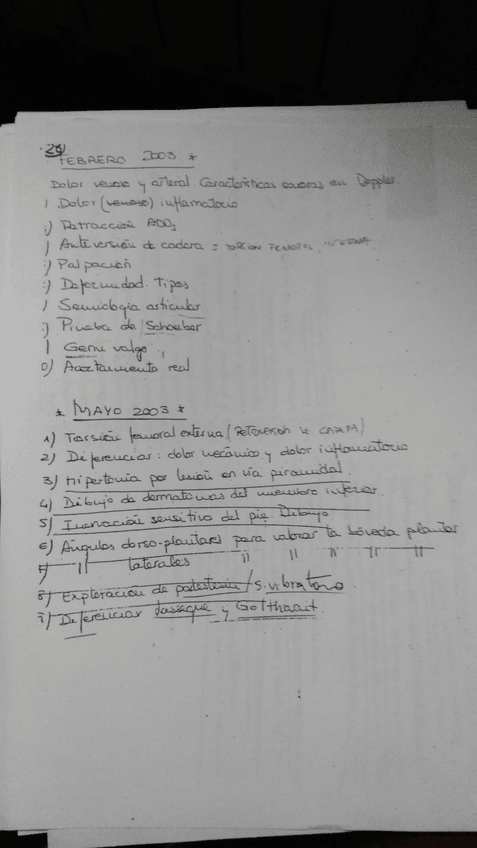 FEBRERO 2003 *
Dolor venoso y arterial Características sonoras en Doppler.
) Dolor (venoso) inflamatorio
) Retracción ADD
) Anteversión de cadera = TORSIÓN FEMORAL INTERNA
) Palpación
) Deformidad. Tipos
) Semiología articular
) Prueba de Schoeber
) Genu valgo
0) Acortamiento real
* MAYO 2003 *
1) Torsión femoral externa (RETROVERSIÓN DE CADERA)
2) Diferenciar: dolor mecánico y dolor inflamatorio
3) Hipertonía por lesión en vía piramidal.
4) Dibujo de dermatomas del miembro inferior.
5) Inervación sensitiva del pie Dibujo
6) Ángulos dorso-plantares para valorar la bóveda plantar
7) " laterales " " " " "
8) Exploración de / S. vibratoria
9) Diferenciar Lassegue y Gotthart.